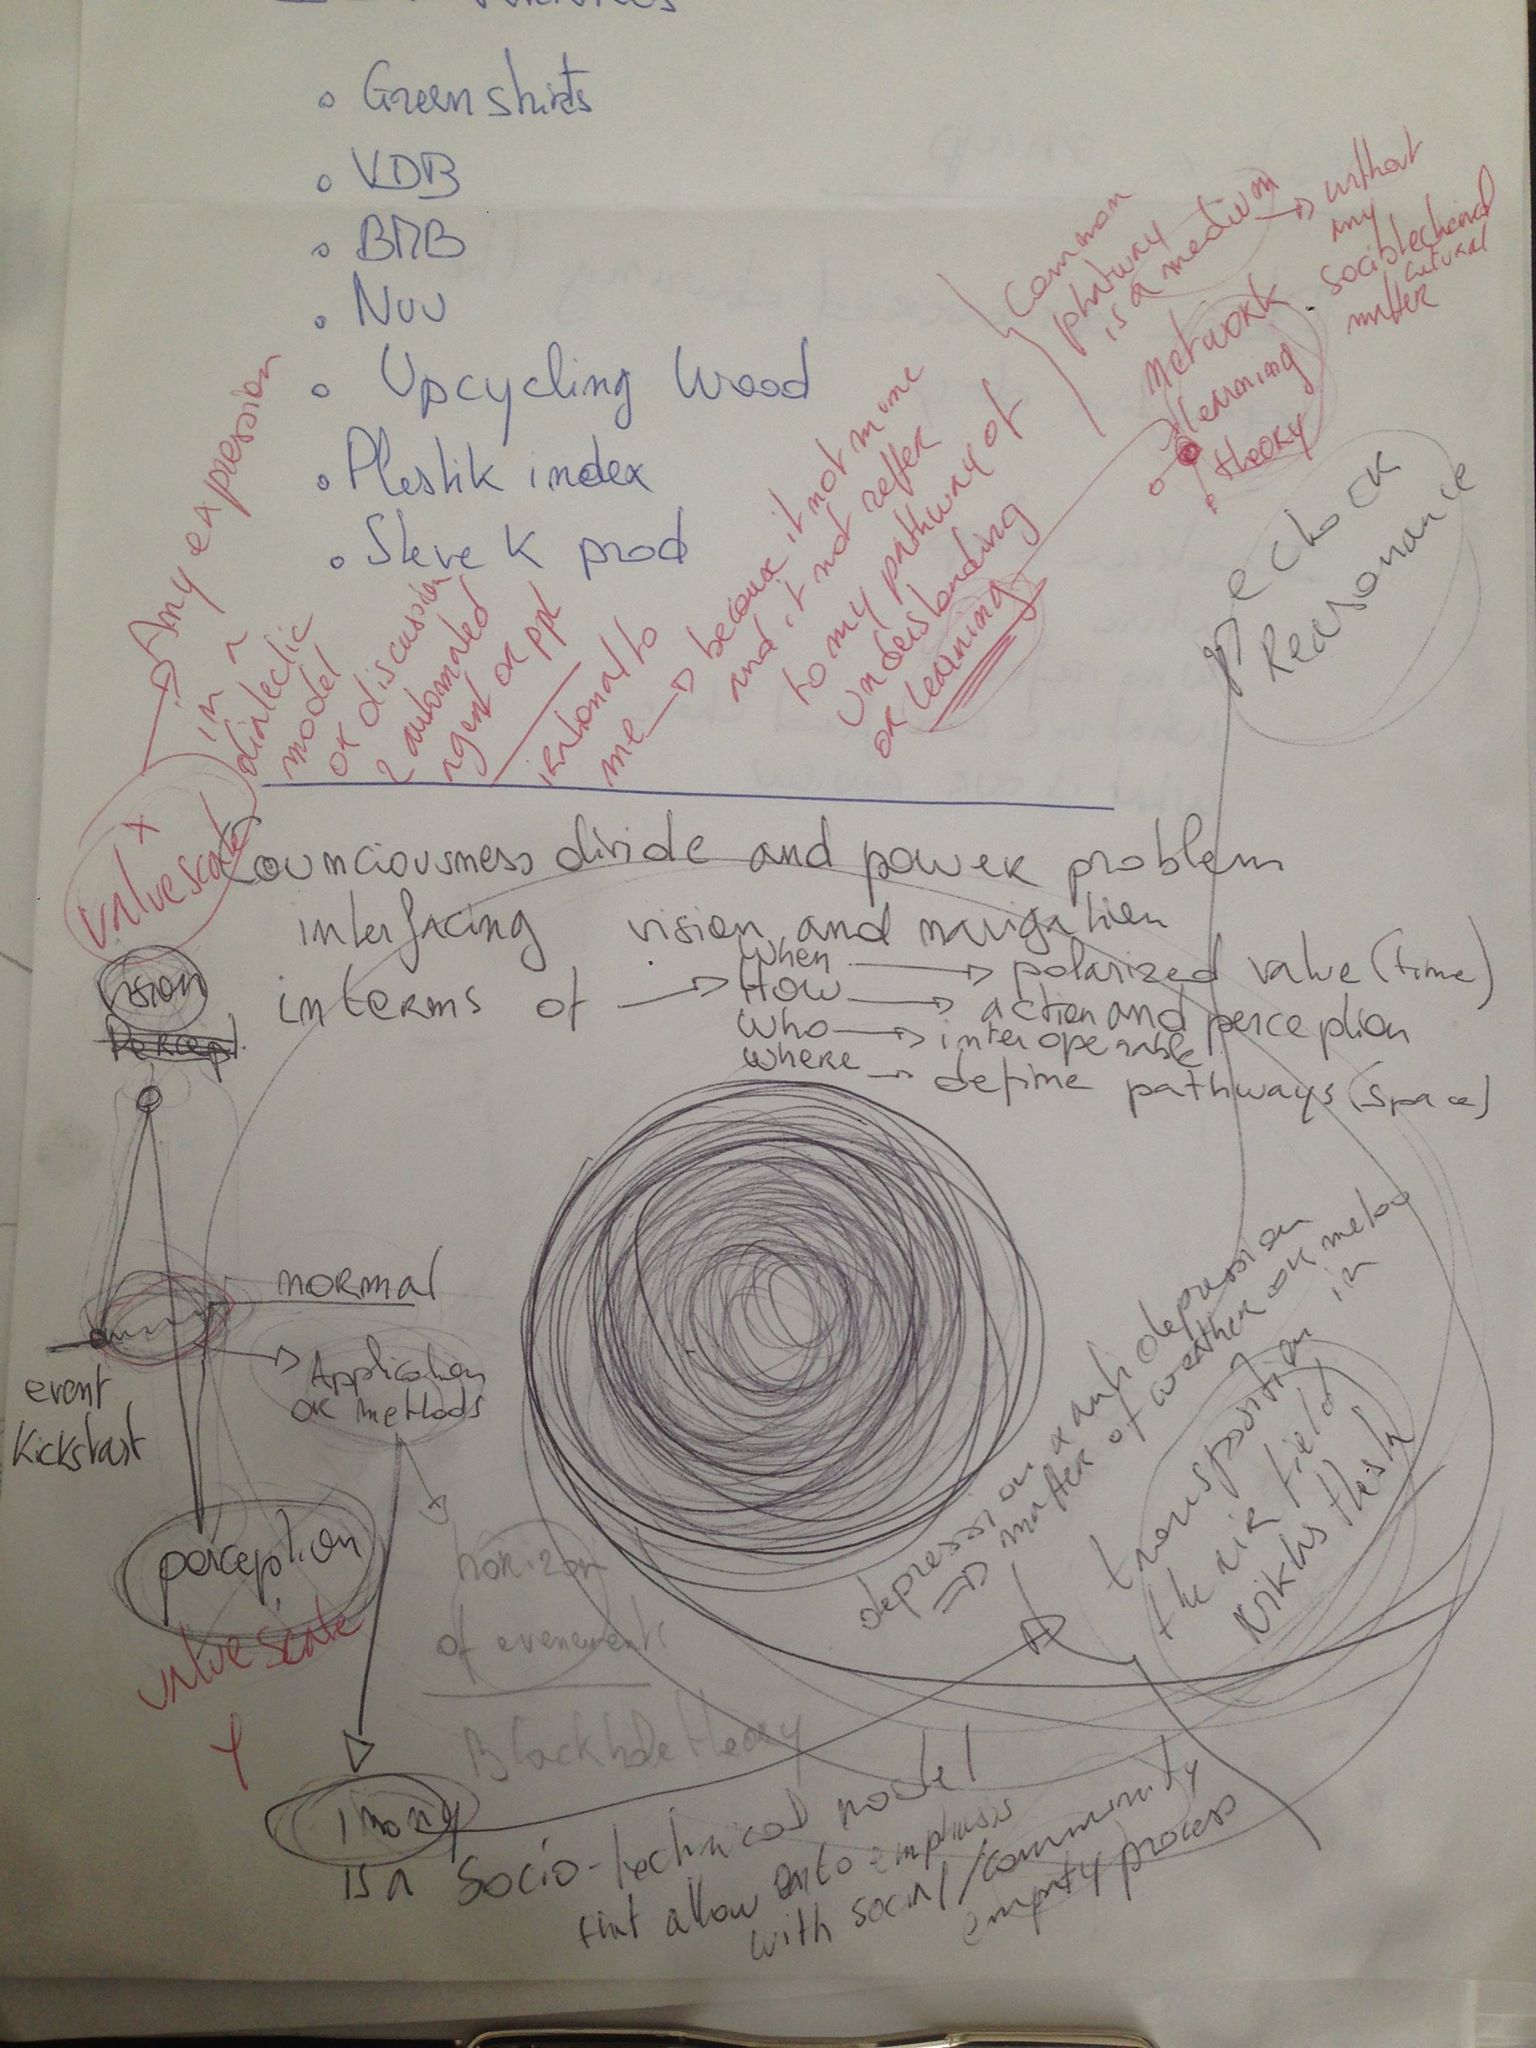 • Green shirts
• VDB
• BMB
• Nuu
• Upcycling Wood
• Plestik index
• Steve K prod
Any expression
in a
dialectic
model
or discussion
2 automated
agent or ppl
irational to
me → because it not mine
and it not reffer
to my pathway of
understanding
or learning
common
phatway
is a medium → without
any
sociotechnical
cutural
matter
network
learning
theory
echock
Reasonance
x
value scale
Counciousness divide and power problem
interfacing vision and navigation
interms of →
when → polarized value (time)
How → action and perception
who → interoperable
where → define pathways (space)
vision
Percept
normal
Application
or methods
event
kickstart
perception
value scale
Y
horizon
of evenements
Blackhole theory
depression & anti depression
⇒ matter of weather or meteo
transposition in
the air field
Niklas thesis
is a socio-technical model
that allow to emphasis
with social/community
empty process